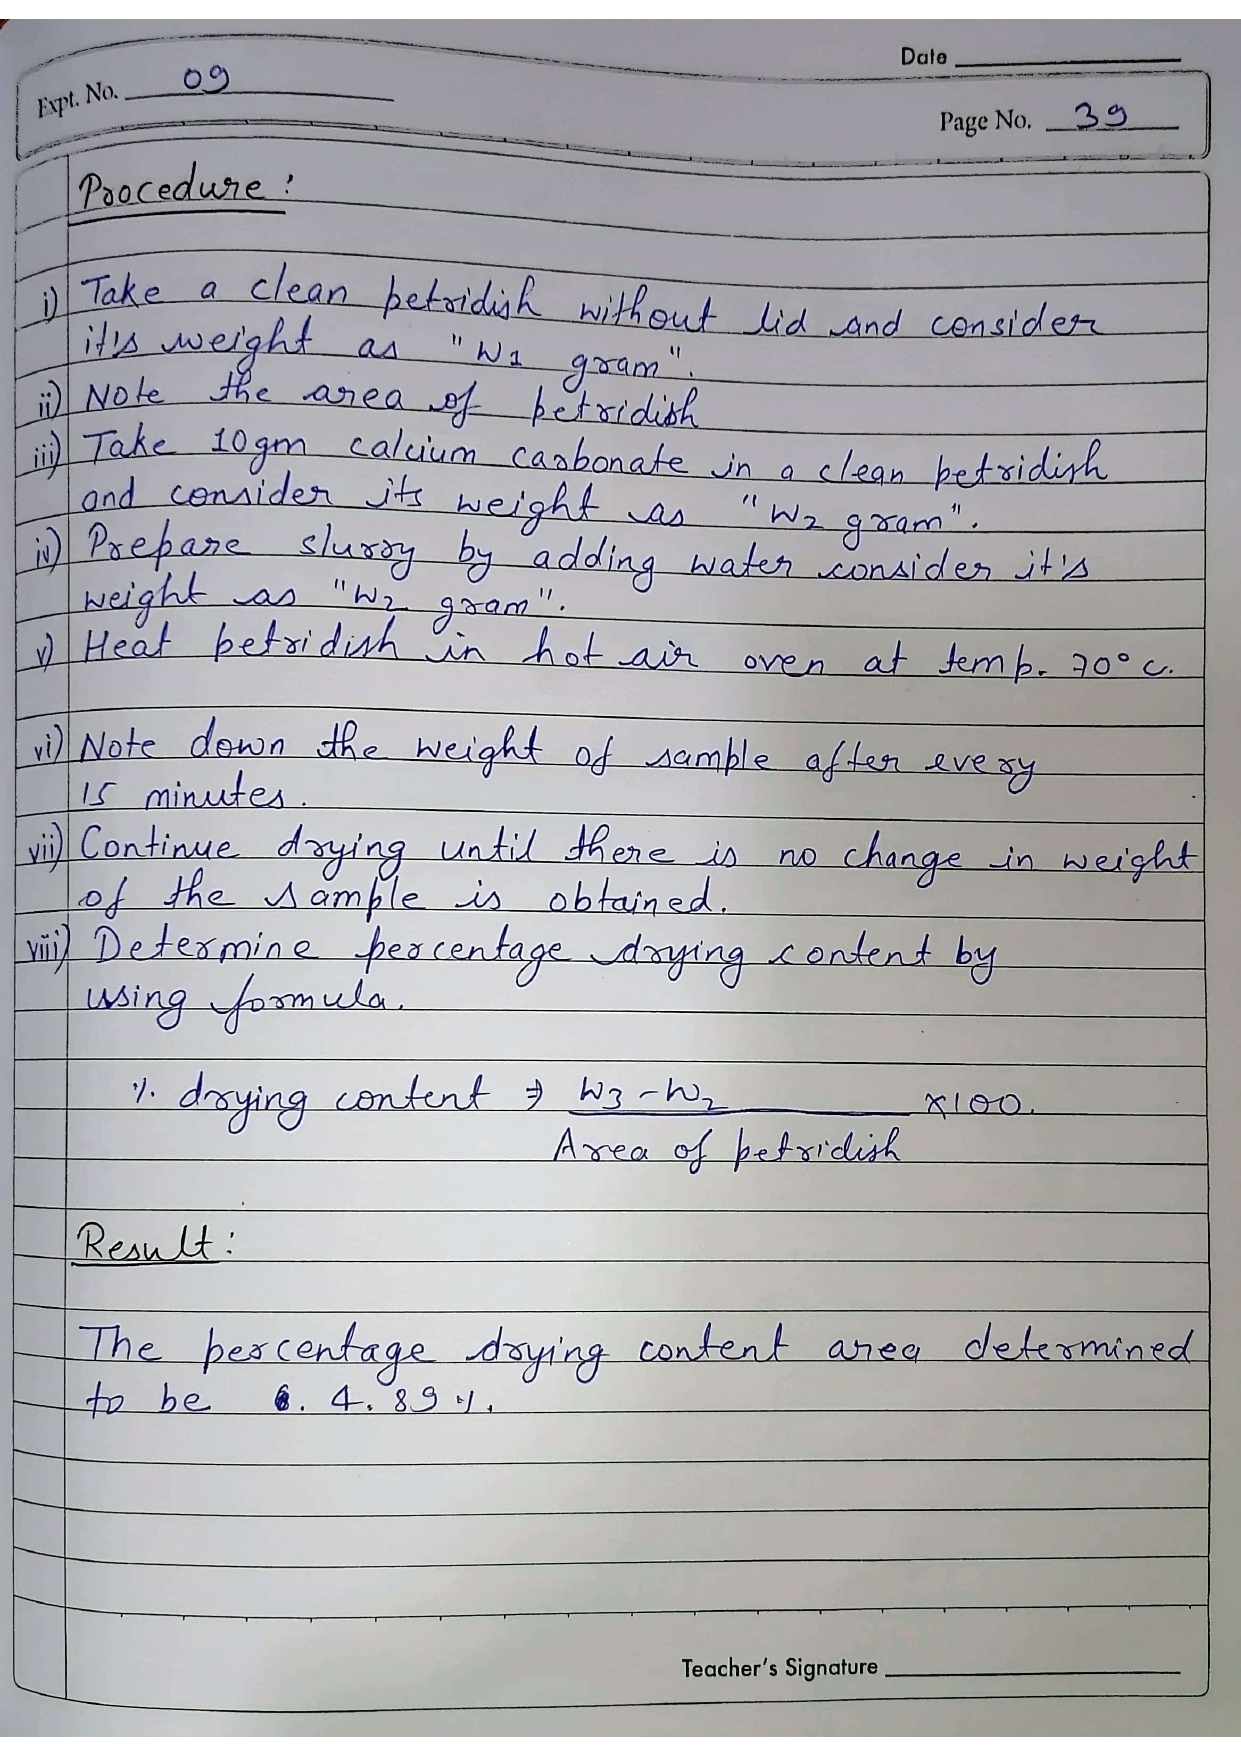 Date
Expt. No. 09
Page No. 39
Procedure :
i) Take a clean petridish without lid and consider
it's weight as "W1 gram".
ii) Note the area of petridish
iii) Take 10gm calcium carbonate in a clean petridish
and consider its weight as "W2 gram".
iv) Prepare slurry by adding water consider it's
weight as "W2 gram".
v) Heat petridish in hot air oven at temp. 70° c.
vi) Note down the weight of sample after every
15 minutes.
vii) Continue drying until there is no change in weight
of the sample is obtained.
viii) Determine percentage drying content by
using formula.
% drying content ⇒ W3 - W2 × 100.
Area of petridish
Result :
The percentage drying content area determined
to be 4.89 %.
Teacher's Signature